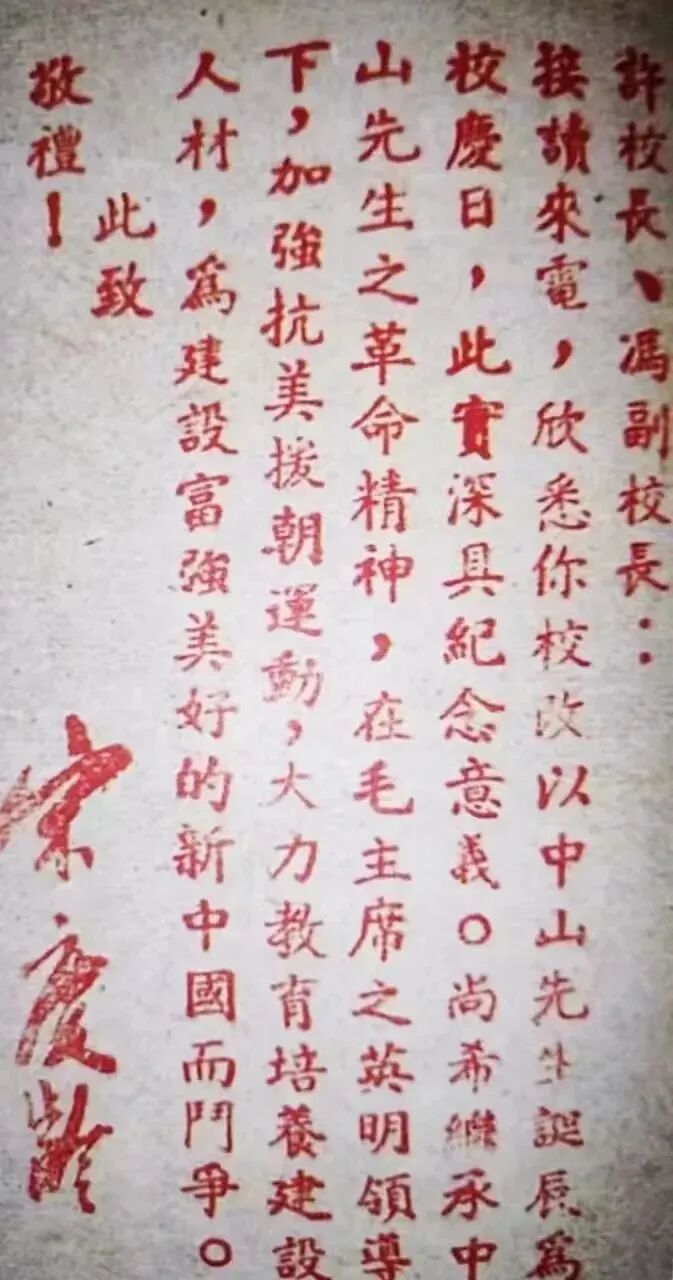 許校長、馮副校長：
接讀來電，欣悉你校改以中山先生誕辰為
校慶日，此實深具紀念意義。尚希繼承中
山先生之革命精神，在毛主席之英明領導
下，加強抗美援朝運動，大力教育培養建設
人材，為建設富強美好的新中國而鬥爭。
此致
敬禮！
宋慶齡